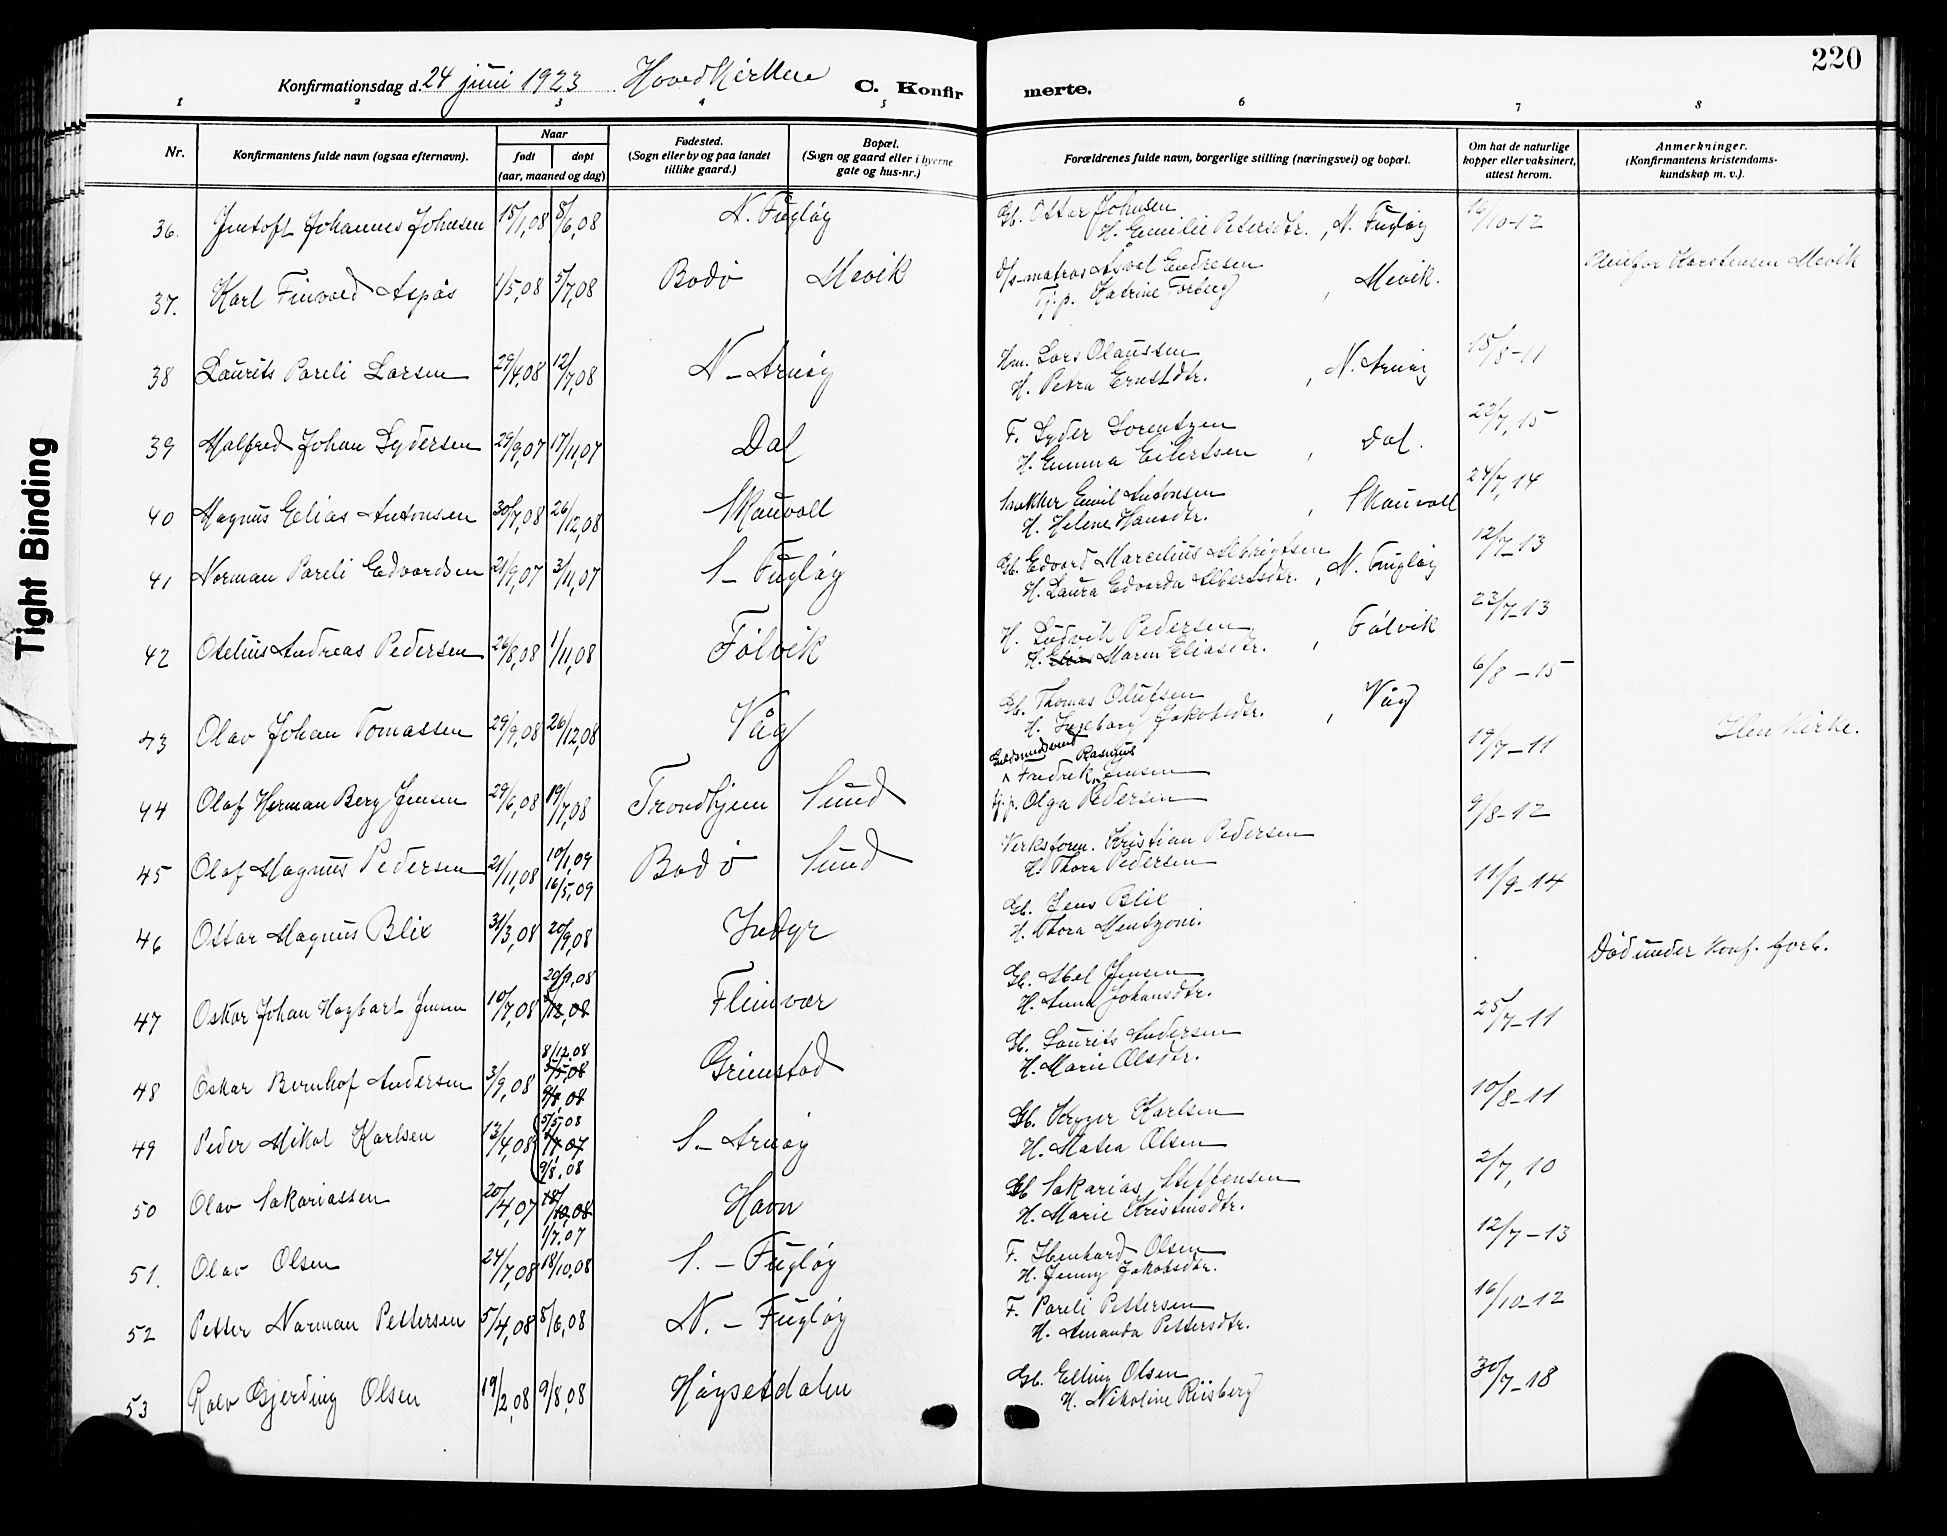 220
Konfirmationsdag d. 24 juni 1923 Hovedkirken C. Konfirmerte.
1 2 3 4 5 6 7 8
Nr.
Konfirmantens fulde navn (ogsaa efternavn).
Naar
født døpt
(aar, maaned og dag)
Fødested.
(Sogn eller by og paa landet
tillike gaard.)
Bopæl.
(Sogn og gaard eller i byerne
gate og hus-nr.)
Forældrenes fulde navn, borgerlige stilling (næringsvei) og bopæl.
Om hat de naturlige
kopper eller vaksinert,
attest herom.
Anmerkninger.
(Konfirmantens kristendoms-
kundskap m. v.).
36. Jentoft Johannes Johnsen 15/1,08 8/6,08 N. Fugløy
Gb. Ottar Johnsen
H. Emilie Petersdtr., N. Fugløy 16/10-12
37. Karl Finvald Aspås 1/5,08 5/7,08 Bodö Mevik
d/s-matros Asval Endresen
Tj.p. Katrine Forberg, Mevik. Karstensen Mevik
38 Laurits Pareli Larsen 29/4,08 12/7,08 N-Arnøy
Hm. Lars Olaussen
H. Petra Ernstdtr., N. Arnøy 15/8-11
39 Malfred Johan Lydersen 29/9,07 17/11,07 Dal
F. Lyder Lorentzen
H. Emma Eilertsen, Dal. 23/7,15
40 Magnus Elias Antonsen 30/7,08 26/12,08 Skauvoll
Snekker Emil Antonsen
H. Helene Hansdtr., Skauvoll 24/7,14
41 Norman Pareli Edvardsen 21/9,07 3/11,07 S-Fugløy
Gb. Edvard Marcelius Albrigtsen
H. Laura Edvarda Albertsdtr., N. Fugløy 12/7-13
42 Otelius Andreas Pedersen 26/8,08 1/11,08 Fölvik
H. Ludvik Pedersen
H. Maren Eliasdtr., Fölvik 23/7-13
43 Olav Johan Tomassen 29/9,08 26/12,08 Våg
Gb. Thomas Olufsen
H. Ingeborg Jakobsdtr., Våg 6/8-15
44 Olaf Herman Berg Jensen 29/6,08 19/7,08 Trondhjem Sund
Guldsmedsvend Rasmus
Fredrek Jensen
tj.p. Olga Pedersen 19/7-11 Ilen Kirke.
45 Olaf Magnus Pedersen 21/11,08 10/1,09 16/5,09 Bodö Sund
Verksform. Kristian Pedersen
H. Thora Pedersen 9/8-12
46 Ottar Magnus Blix 31/3,08 20/9,08 Indyr
Gb. Jens Blix
H. Thora Mentzoni. 11/9-14
47 Oskar Johan Hagbart Jensen 10/7,08 20/9,08 /12,08 Fleinvær
Gb. Abel Jensen
H. Anna Johansdtr. Död under konf. forb.
48 Oskar Bernhof Andersen 3/9,08 8/12.08 5/5,08 9/8,08 Grimstad
Gb. Laurits Andersen
H. Marie Olsdtr. 25/7-11
49 Peder Mikal Karlsen 13/4,08 5/5,08 1/7.07 9/8.08 S-Arnøy
Gb. Kryger Karlsen
H. Matea Olsen 10/8-11
50 Olav Sakariassen 20/4,07 18/10,08 1/7.07 Havn
Gb Sakarias Steffensen
H. Marie Kristensdtr. 2/7,10
51. Olav Olsen 24/7,08 18/10,08 S.-Fugløy
F. Ibenhard Olsen
H. Jenny Jakobsdtr. 12/7-13
52 Petter Norman Pettersen 5/4,08 8/6,08 N.-Fugløy
F. Pareli Pettersen
H. Amanda Pettersdtr. 16/10-12
53 Rolv Gjerding Olsen 19/2,08 9/8,08 Høgsetdalen
Gb. Elling Olsen
H. Nikoline Riisberg 30/7-18
Tight Binding